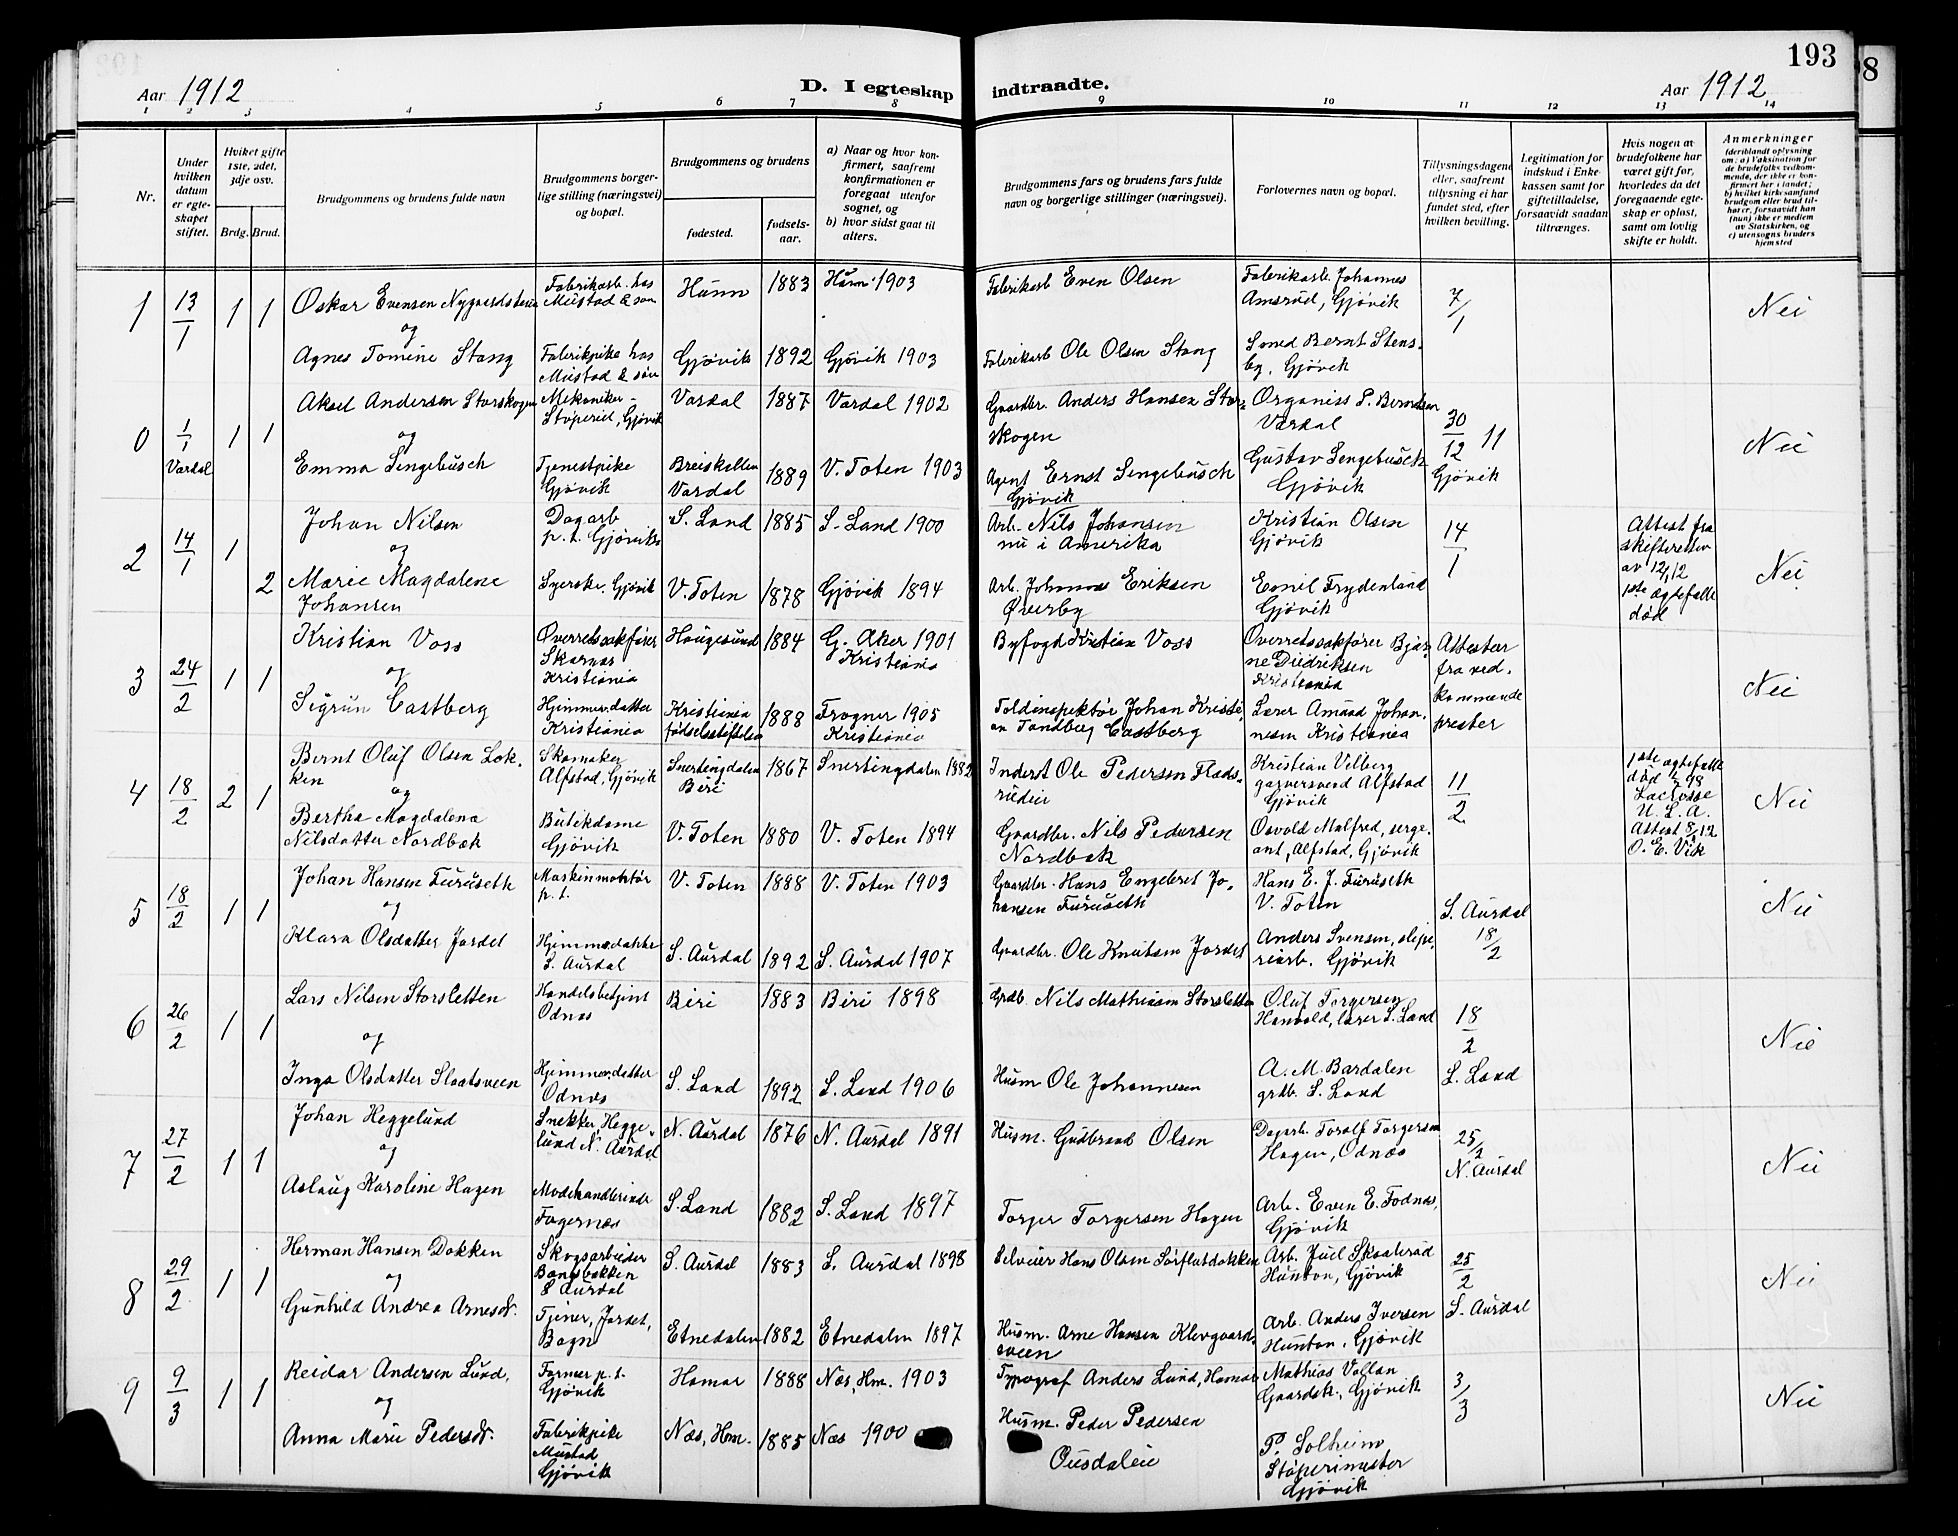 193
8
Aar 1912
D. I egteskap indtraadte.
Aar 1912
1 2 3 4 5 6 7 8 9 10 11 12 13 14
Nr.
Under hvilken datum er egteskapet stiftet.
Hviket gifte 1ste, 2det, 3dje osv.
Brdg. Brud.
Brudgommens og brudens fulde navn
Brudgommens borgerlige stilling (næringsvei) og bopæl.
Brudgommens og brudens
fødested.
fødselsaar.
a) Naar og hvor konfirmert, saafremt konfirmationen er foregaat utenfor sognet, og b) hvor sidst gaat til alters.
Brudgommens fars og brudens fars fulde navn og borgerlige stillinger (næringsvei).
Forlovernes navn og bopæl.
Tillysningsdagene eller, saafremt tillysning ei har fundet sted, efter hvilken bevilling.
Legitimation for indskud i Enkekassen samt for giftetilladelse, forsaavidt saadan tiltrænges.
Hvis nogen av brudefolkene har været gift før, hvorledes da det foregaaende egteskap er opløst, samt om lovlig skifte er holdt.
Anmerkninger (deriblandt oplysning om: a) Vaksination for de brudefolks vedkommende, der ikke er konfirmert her i landet; b) hvilket kirkesamfund brudgom eller brud tilhører, forsaavidt han (hun) ikke er medlem av Statskirken, og c) utensogns bruders hjemsted
1 13/1 1 1 Oskar Evensen Nygaardsteie Fabrikarb. hos Mustad & søn Hunn 1883 Hunn 1903 Fabrikarb Even Olsen Fabrikarb. Johannes Amsrud, Gjövik 7/1 Nei
og
Agnes Tomine Stang Fabrikpike hos Mustad & søn Gjövik 1892 Gjövik 1903 Fabrikarb Ole Olsen Stang Smed Bernt Stensby, Gjövik
0 1/1 Vardal 1 1 Aksel Andersen Storskogen Mekaniker Støperiet, Gjövik Vardal 1887 Vardal 1902 Gaardbr. Anders Hansen Storskogen Organist P. Berntsen Vardal 30/12 11 Gjövik Nei
og
Emma Sengebusch Tjenestpike Gjövik Breiskallen Vardal 1889 V. Toten 1903 Agent Ernst Sengebusch Gjövik Gustav Sengebusch Gjövik
2 14/1 1 Johan Nilsen Dagarb p. t. Gjövik S. Land 1885 S. Land 1900 Arb. Nils Johansen nu i Amerika Kristian Olsen Gjövik 14/1 Attest fra skifteretten av 12/1 12 1ste ægtefælle død Nei
og
2 Marie Magdalene Johansen Syerske, Gjövik V. Toten 1878 Gjövik 1894 Arb. Johannes Eriksen Øverby Emil Frydenlund Gjövik
3 24/2 1 1 Kristian Voss Overretssakfører Skarnes Kristiania Haugesund 1884 G. Aker 1901 Kristiania Byfogd Kristian Voss Overretssakfører Bjarne Diedriksen Kristiania Attester fra vedkommende prester Nei
og
Sigrun Castberg Hjemmev. datter Kristiania Kristiania fødselsstiftelse 1888 Frogner 1905 Kristiania Toldinspektør Johan Kristian Tandberg Castberg Lærer Amund Johannesen Kristiania
4 18/2 2 1 Bernt Oluf Olsen Løkken Skomaker Alfstad, Gjövik Snertingdalen Biri 1867 Snertingdalen 1882 Inderst Ole Pedersen Kristian Vilberg garversvend Alfstad Gjövik 11/2 1ste ægtefælle død 98 Lacrosse U. S. A. Attest 8/2 12 O. E. Vik Nei
og
Bertha Magdalena Nilsdatter Nordbæk Butikdame Gjövik V. Toten 1880 V. Toten 1894 Gaardbr. Nils Pedersen Nordbæk Osvald Malfred, sergeant, Alfstad, Gjövik
5 18/2 1 1 Johan Hansen Furuseth Maskinmontør p. t. V. Toten 1888 V. Toten 1903 Gaardbr. Hans Engebret Johansen Furuseth Hans E. J. Furuseth V. Toten S. Aurdal 18/2 Nei
og
Klara Olsdatter Jordet Hjemmev. datter S. Aurdal S. Aurdal 1892 S. Aurdal 1907 Gaardbr. Ole Knutsen Jordet Anders Svensen, sliperiarb. Gjövik
6 26/2 1 1 Lars Nilsen Storsletten Handelsbetjent Odnes Biri 1883 Biri 1898 Grdb. Nils Mathiasen Storsletten Oluf Torgersen Hanvold, lærer S. Land 18/2 S. Land Nei
og
Inga Olsdatter Slaatsveen Hjemmev. datter Odnes S. Land 1892 S. Land 1906 Husm Ole Johannesen A. M. Bardalen grdb. S. Land
7 27/2 1 1 Johan Heggelund Snekker, Heggelund N. Aurdal N. Aurdal 1876 N. Aurdal 1891 Husm. Gudbrand Olsen Dagarb. Torolf Torgersen Hagen, Odnes 25/2 N. Aurdal Nei
og
Aslaug Karoline Hagen Modehandlerinde Fagernes S. Land 1882 S. Land 1897 Torger Torgersen Hagen Arb. Even E. Fodnes, Gjövik
8 29/2 1 1 Herman Hansen Dokken Skogsarbeider S. Aurdal S. Aurdal 1883 S. Aurdal 1898 Selveier Hans Olsen Sørflatdokken Arb. Juel Skaaterud Hunton, Gjövik 25/2 S. Aurdal Nei
og
Gunhild Andrea Arnesdr. Tjener, Jordet, Bagn Etnedalen 1882 Etnedalen 1897 Husm. Arne Hansen Klevgaardsveen Arb. Anders Iversen Hunton, Gjövik
9 9/3 1 1 Reidar Andersen Lund, Former p. t. Gjövik Hamar 1888 Næs, Hm. 1903 Typograf Anders Lund, Hamar Mathias Vollan Gaardsk., Gjövik 3/3 Nei
og
Anna Marie Pedersdr. Fabrikpike Mustad Gjövik Næs, Hm. 1885 Næs 1900 Husm. Peder Pedersen P. Solheim Støperimester Gjövik